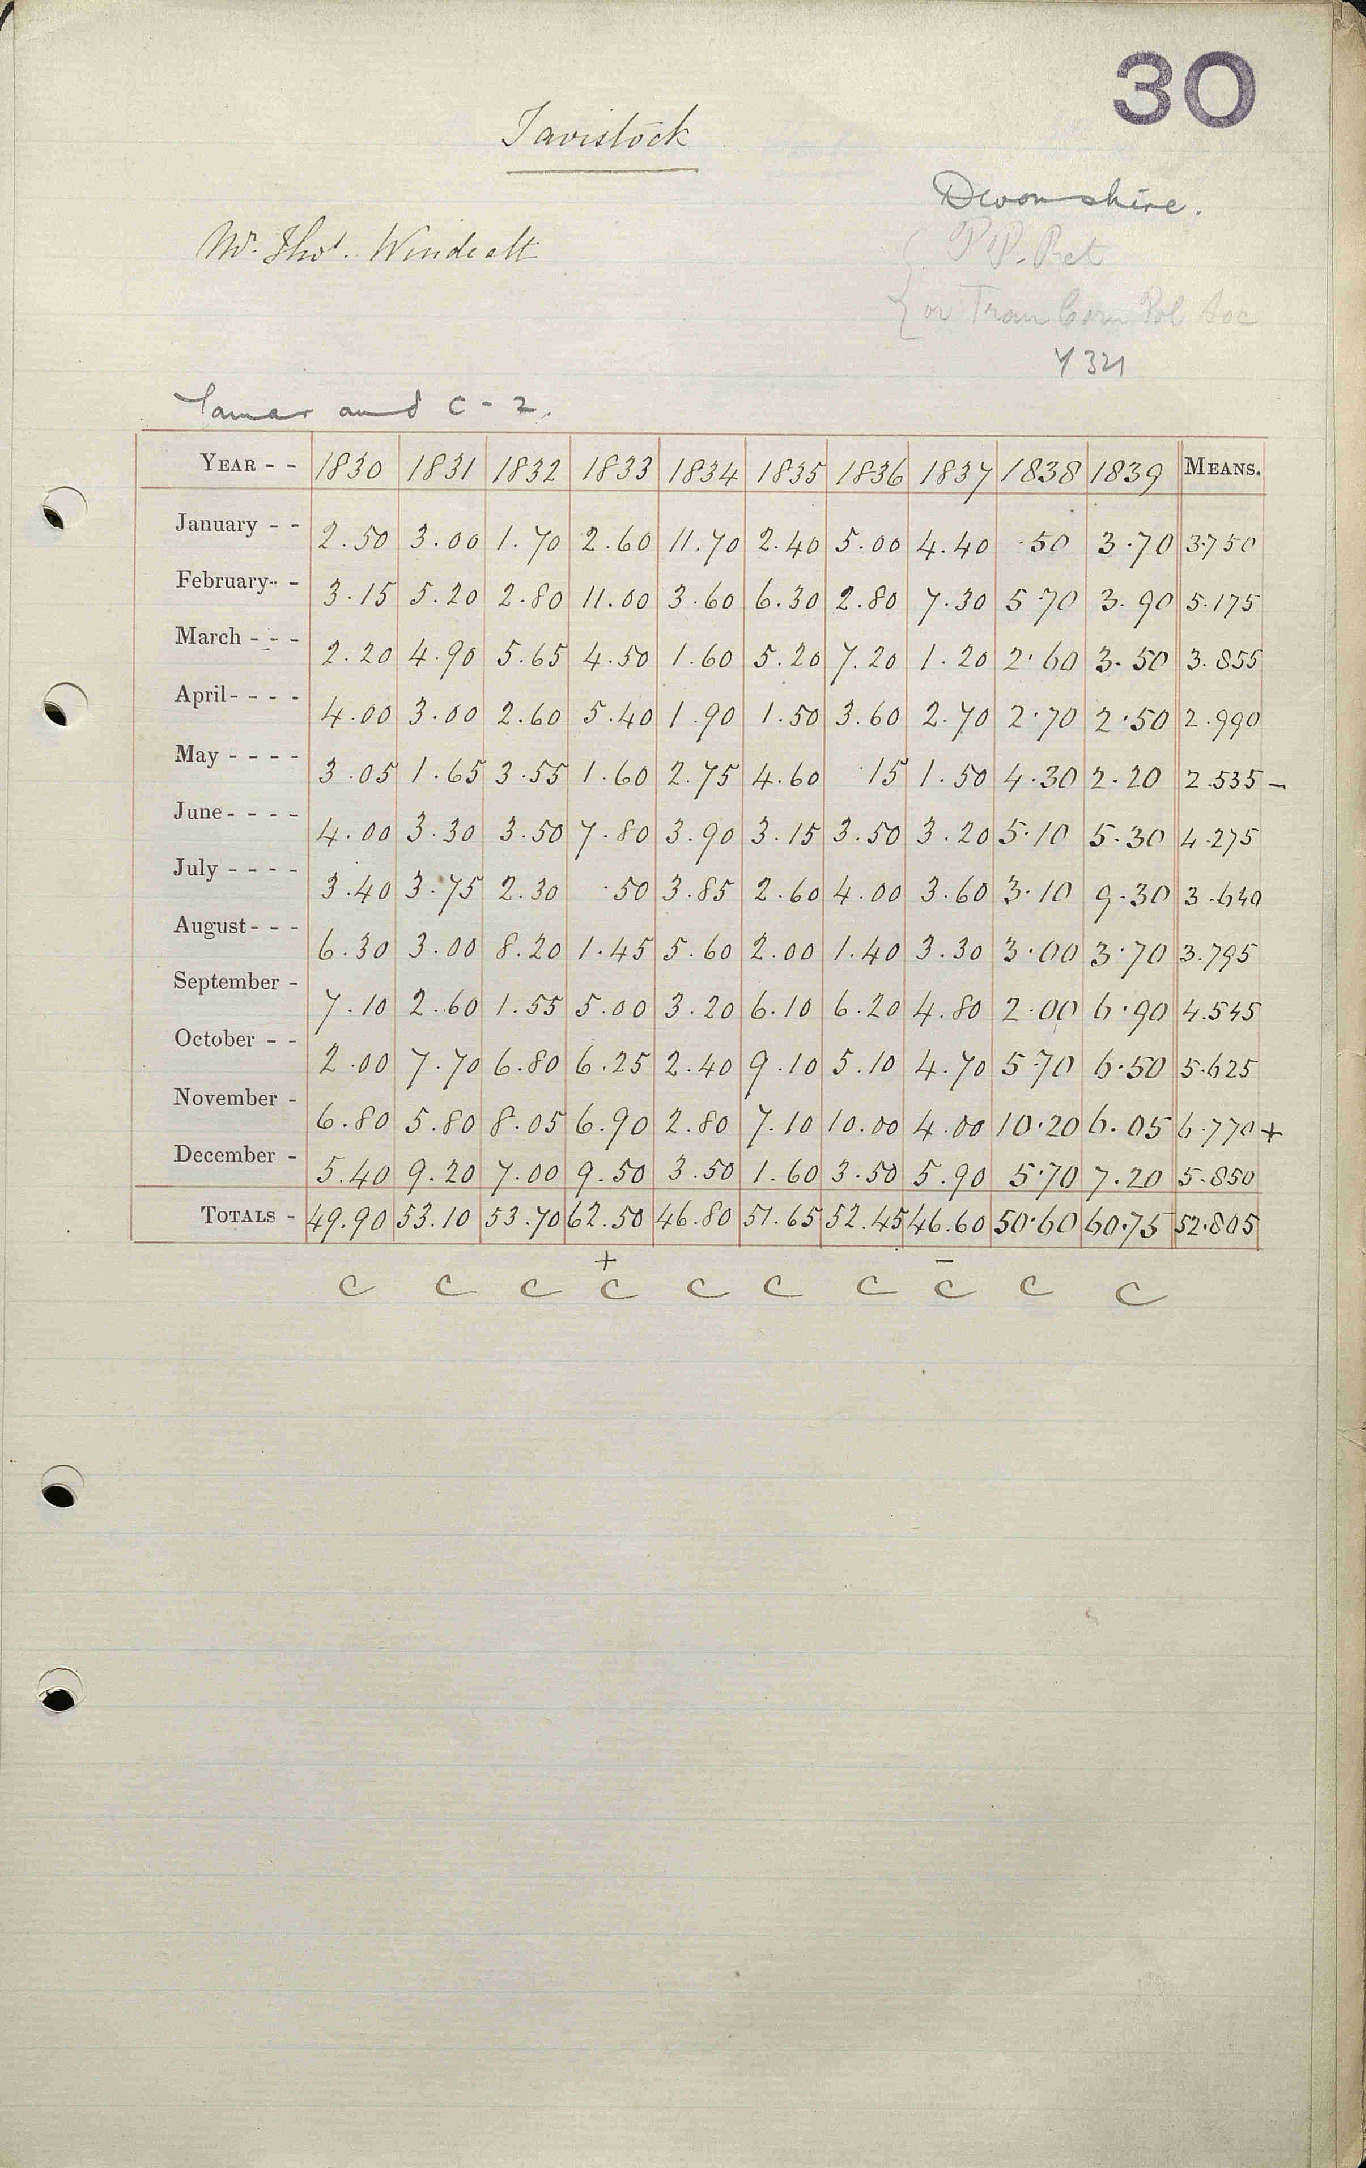 30
Tavistock
Devonshire.
Mr. Thos. Windeatt
P.P. Ret
{ or Tran Corn Pol Soc
Tamar and C - 2.
YEAR - - 1830 1831 1832 1833 1834 1835 1836 1837 1838 1839 MEANS.
January - - 2.50 3.00 1.70 2.60 11.70 2.40 5.00 4.40 .50 3.70 3.750
February - - 3.15 5.20 2.80 11.00 3.60 6.30 2.80 7.30 5.70 3.90 5.175
March - - - 2.20 4.90 5.65 4.50 1.60 5.20 7.20 1.20 2.60 3.50 3.855
April - - - - 4.00 3.00 2.60 5.40 1.90 1.50 3.60 2.70 2.70 2.50 2.990
May - - - - 3.05 1.65 3.55 1.60 2.75 4.60 15 1.50 4.30 2.20 2.535 -
June - - - - 4.00 3.30 3.50 7.80 3.90 3.15 3.50 3.20 5.10 5.30 4.275
July - - - - 3.40 3.75 2.30 .50 3.85 2.60 4.00 3.60 3.10 9.30 3.640
August - - - 6.30 3.00 8.20 1.45 5.60 2.00 1.40 3.30 3.00 3.70 3.795
September - 7.10 2.60 1.55 5.00 3.20 6.10 6.20 4.80 2.00 6.90 4.545
October - - 2.00 7.70 6.80 6.25 2.40 9.10 5.10 4.70 5.70 6.50 5.625
November - 6.80 5.80 8.05 6.90 2.80 7.10 10.00 4.00 10.20 6.05 6.770 +
December - 5.40 9.20 7.00 9.50 3.50 1.60 3.50 5.90 5.70 7.20 5.850
TOTALS - 49.90 53.10 53.70 62.50 46.80 51.65 52.45 46.60 50.60 60.75 52.805
+ -
C C C C C C C C C C